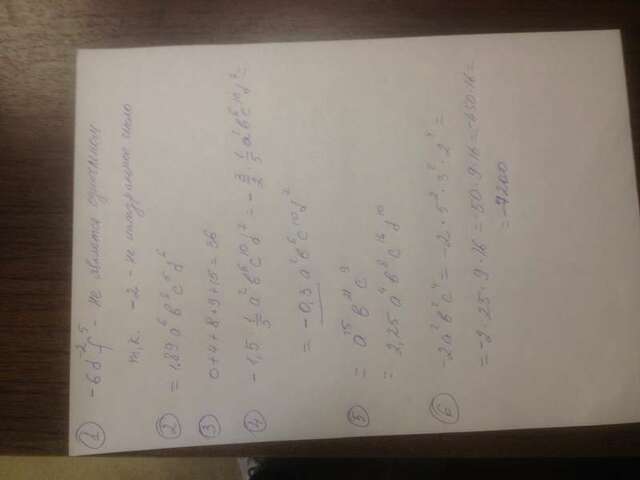 ① -6d⁻²f⁵ - не является одночленом
т.к. -2 - не натуральное число
② = 1,89a⁶b⁸c⁵d⁶
③ 0+4+8+9+15=36
④ -1,5 · 1/5 a²b⁶c¹⁰d² = -3/2 · 1/5 a²b⁶c¹⁰d² =
= -0,3 a²b⁶c¹⁰d²
⑤ = a¹⁵b²¹c⁹
= 2,25a⁴b⁸c¹⁶d¹⁰
⑥ -2a²b²c⁴ = -2·5²·3²·2⁴ =
= -2·25·9·16 = -50·9·16 = -450·16 =
= -7200